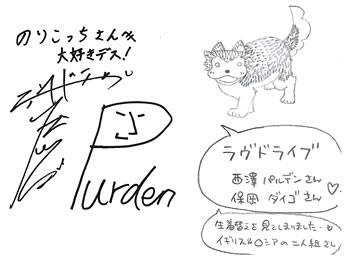 のりこっちさんへ
大好きデス!
Purden
ラヴドライブ
西澤 パルデンさん
保岡 ダイゴさん ♡
生着替えを見てしまいました…♡
イギリス&ロシアの二人組さん